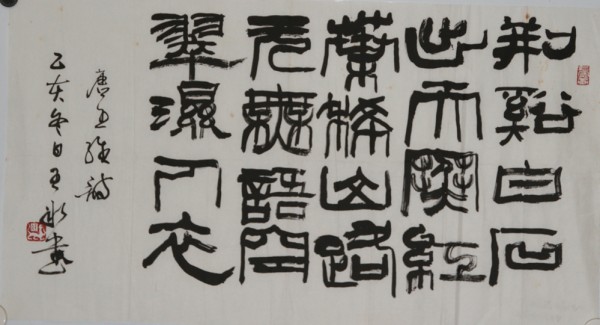 荊谿白石
出天寒紅
葉稀山路
元無語空
翠濕人衣
唐王維詩
乙亥冬日王冰書